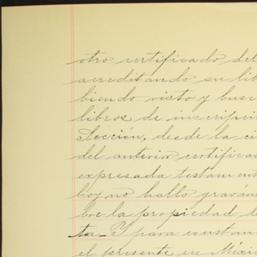 otro certificado del
acreditando su li
biendo visto y bus
libros de inscripci
Sección, desde la ci
del anterior certifica
expresada testament
hoy no hallo graváme
bre la propiedad d
ta. Y para constan
el presente en Méxic